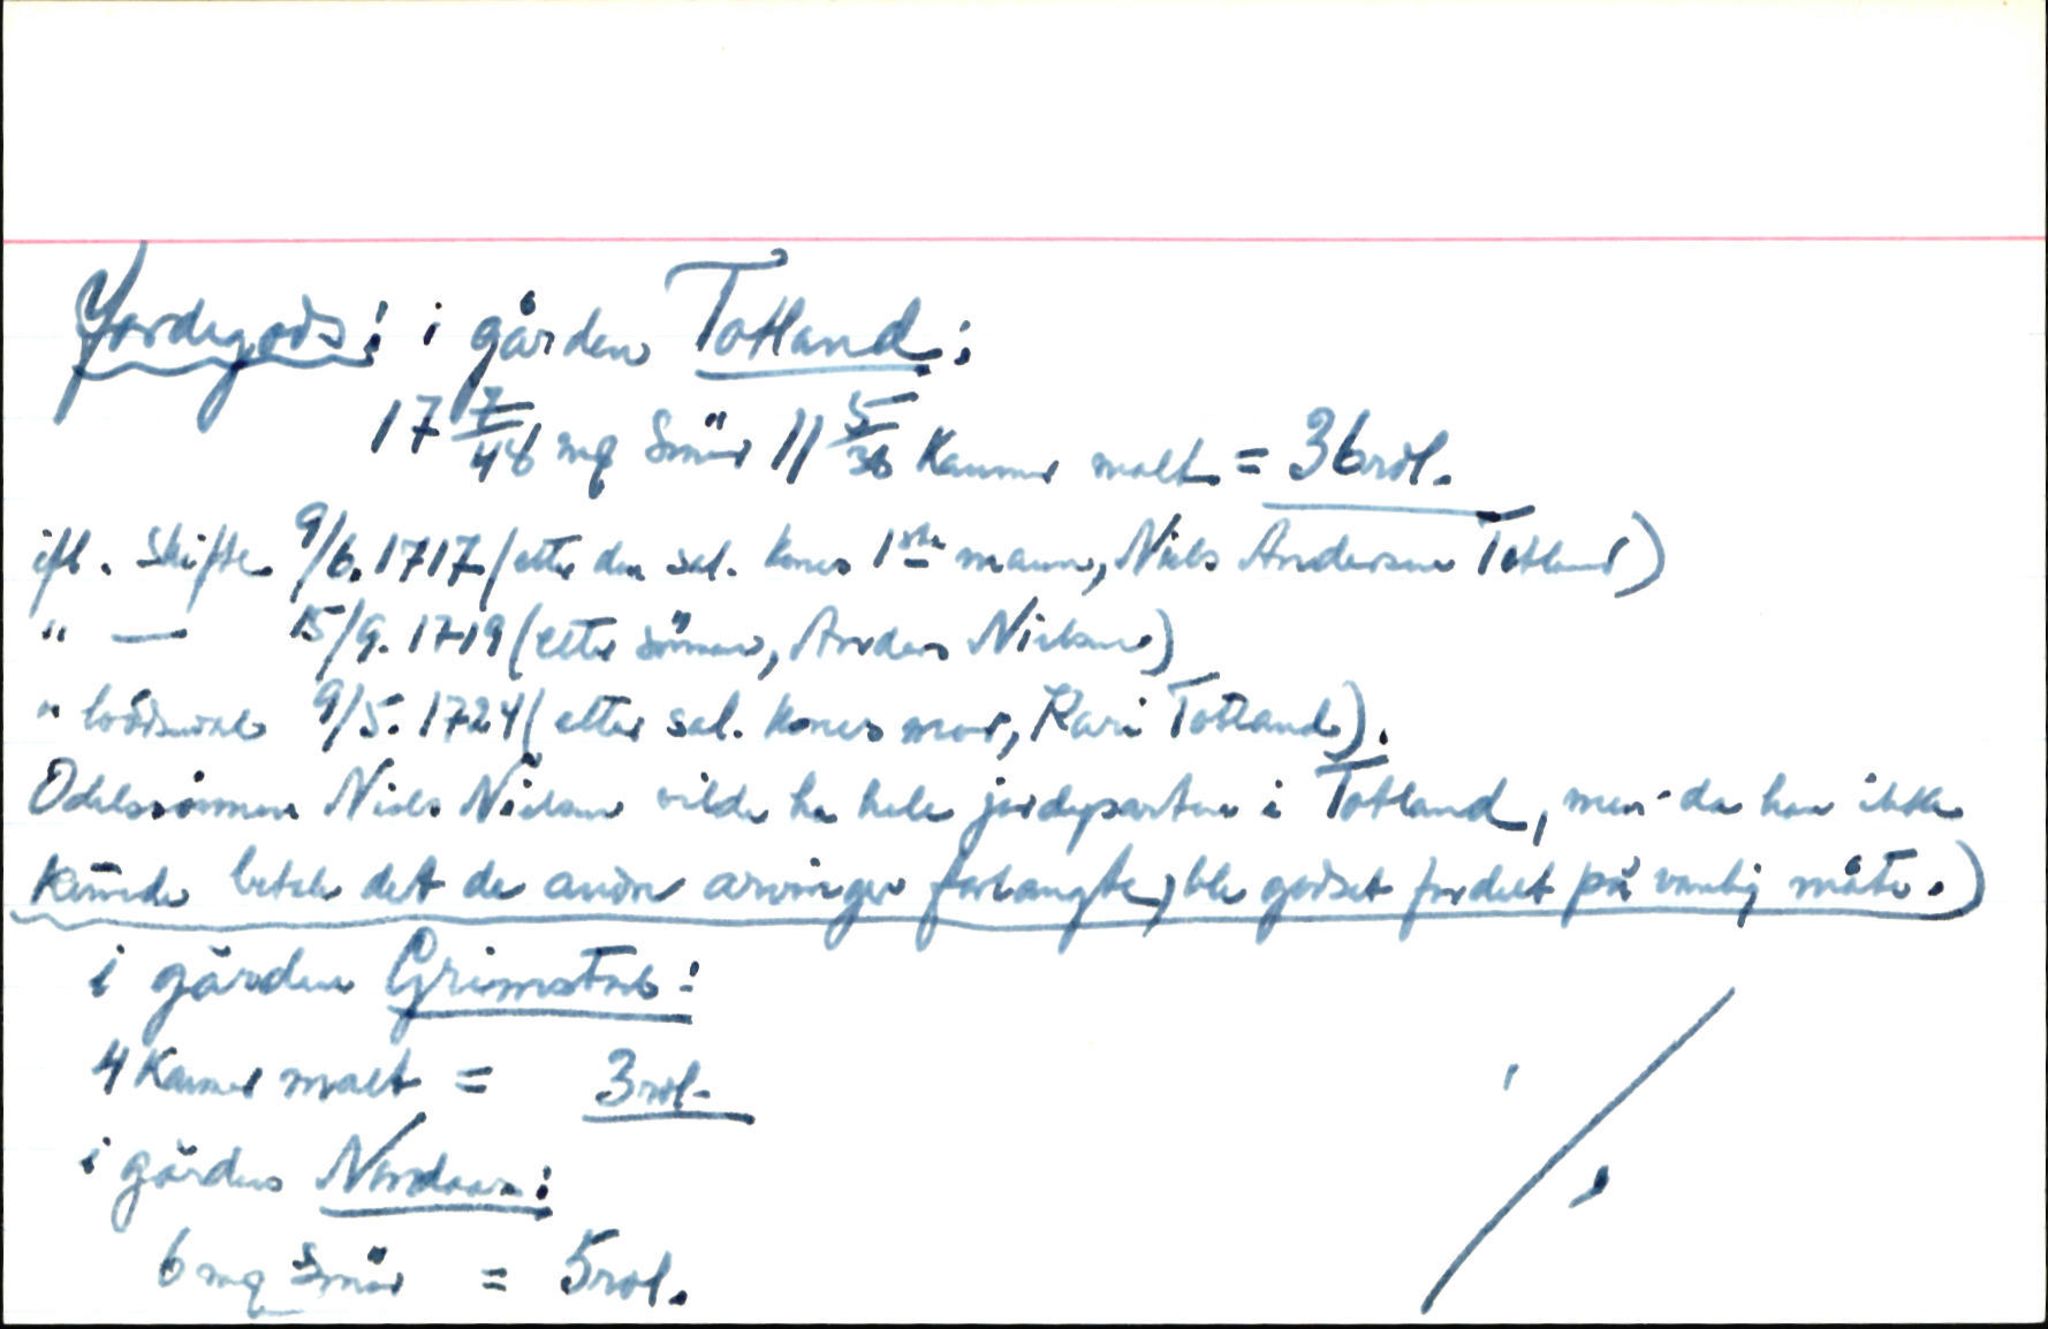 Jordegods: i gården Totland:
17 7/48 mq Smör 11 5/36 Kanner malt = 36 rdl.
ifl. Skifte 9/6. 1717 (etter den sal. kones 1ste mann, Niels Andersen Totland)
" — 15/9. 1719 (etter sönnen, Anders Nielsen)
" 9/5. 1724 (etter sal. kones mor, Kari Totland).
Odelssönnen Niels Nielsen vilde ha hele jordeparten i Totland, men da han ikke
kunde betale det de andre arvinger forlangte, ble godset fordelt på vanlig måte.)
i gården Grimstad:
4 Kanner malt = 3 rdl.
i gården Nordaas:
6 mq Smör = 5 rdl.